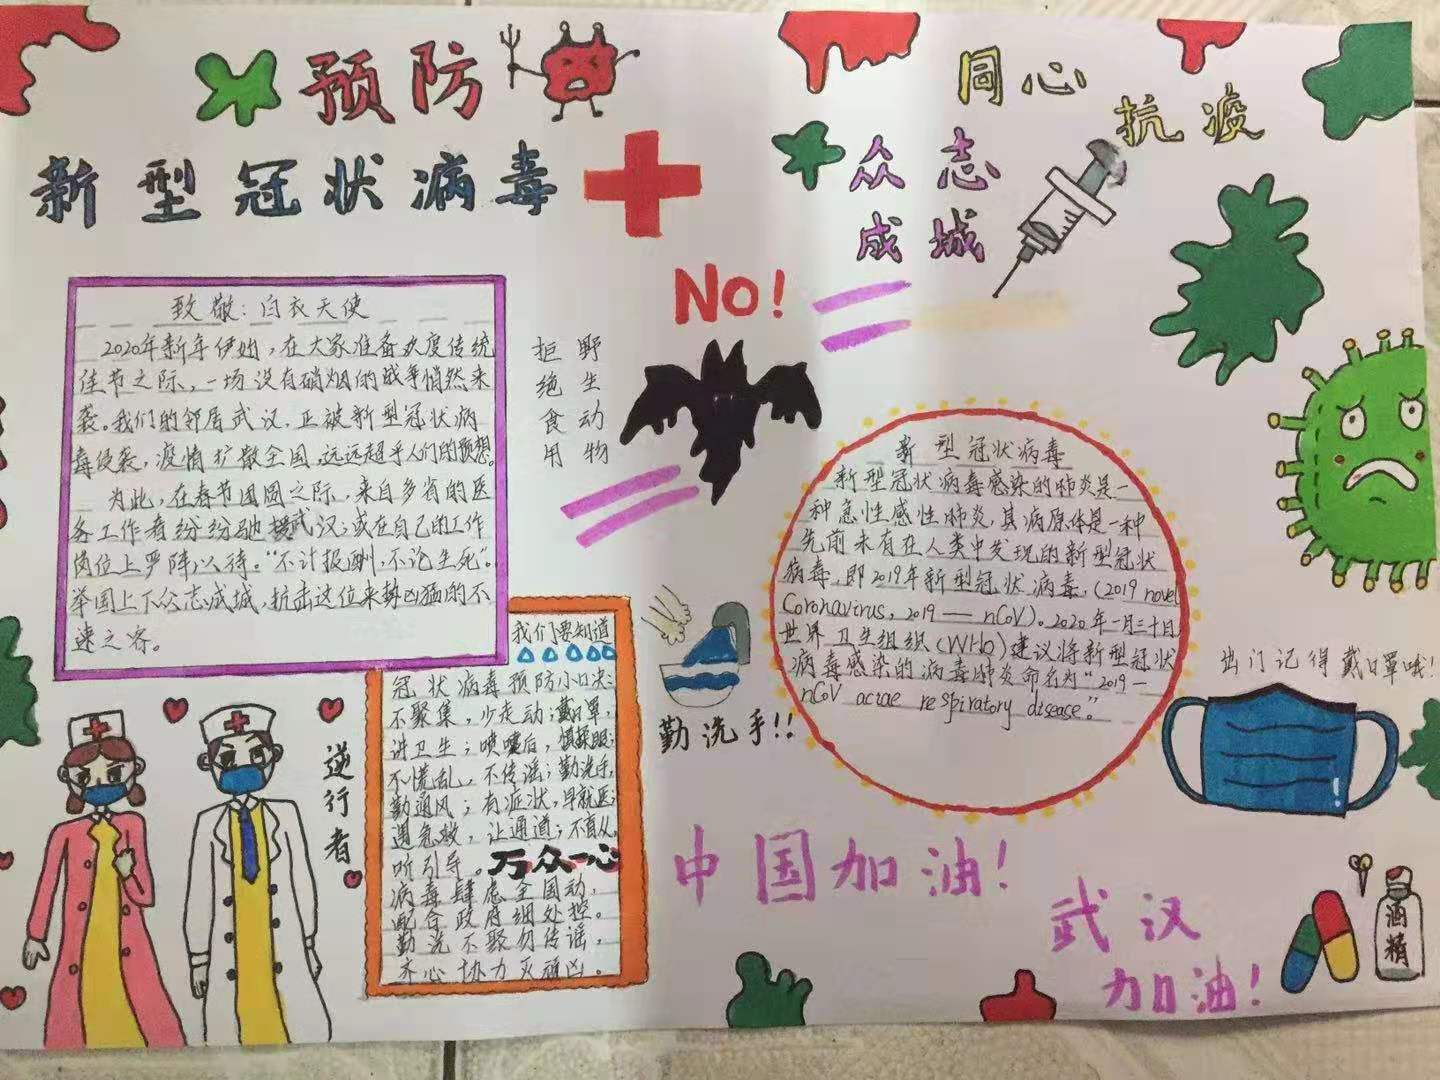 预防
新型冠状病毒
同心
抗疫
众志
成城
NO!
致敬:白衣天使
2020年新年伊始,在大家准备欢度传统
佳节之际,一场没有硝烟的战争悄然来
袭。我们的邻居武汉,正被新型冠状病
毒侵袭,疫情扩散全国,远远超乎人们的预想。
为此,在春节团圆之际,来自多省的医
务工作者纷纷驰援武汉;或在自己的工作
岗位上严阵以待。“不计报酬,不论生死”。
举国上下众志成城,抗击这位来势凶猛的不
速之客。
拒绝食用
野生动物
新型冠状病毒
新型冠状病毒感染的肺炎是一
种急性感性肺炎,其病原体是一种
先前未有在人类中发现的新型冠状
病毒,即2019年新型冠状病毒,(2019 novel
Coronavirus, 2019——nCoV)。2020年一月三十日
世界卫生组织(WHO)建议将新型冠状
病毒感染的病毒肺炎命名为“2019—
nCoV acrae respiratory disease。”
我们要知道
冠状病毒预防小口决:
不聚集,少走动;戴口罩,
讲卫生;喷嚏后,慎揉眼;
不慌乱,不传谣;勤洗手,
勤通风;有症状,早就医;
遇急救,让通道;不盲从,
听引导。
万众一心
病毒肆虐全国动,
配合政府细处控。
勤洗不聚勿传谣,
齐心协力灭顽凶。
勤洗手!!
出门记得戴口罩哦!
逆行者
中国加油!
武汉
加油!
酒精